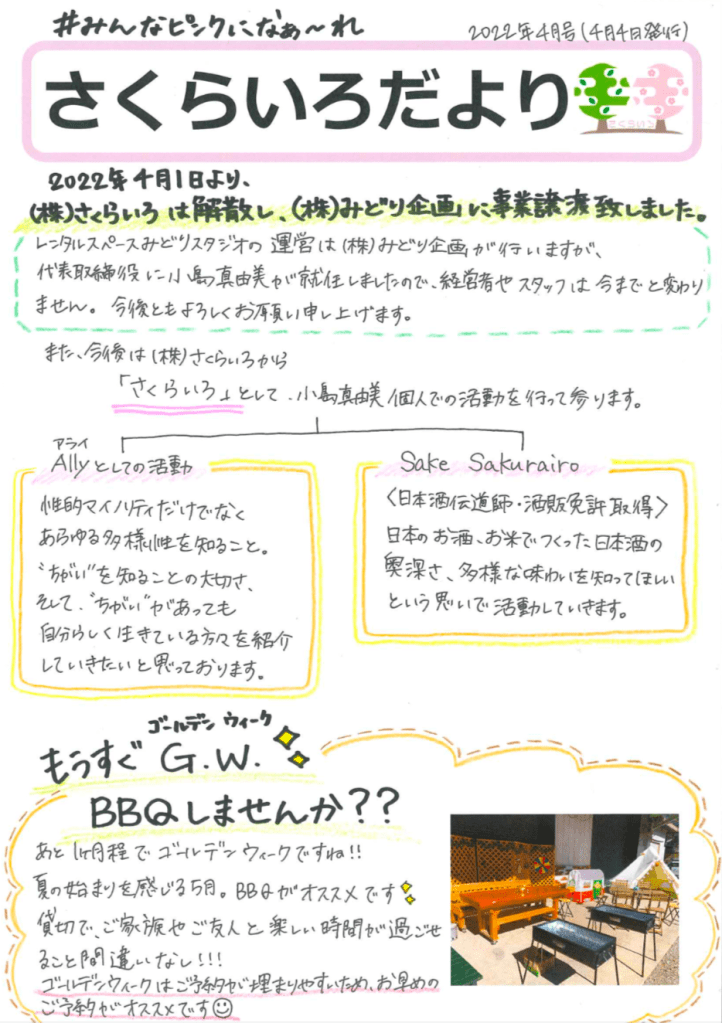 #みんなピンクになぁ〜れ
2022年4月号(4月4日発行)
さくらいろだより
さくらいろ
2022年4月1日より、
(株)さくらいろは解散し、(株)みどり企画に事業譲渡致しました。
レンタルスペースみどりスタジオの運営は(株)みどり企画が行いますが、
代表取締役に小島真由美が就任しましたので、経営者やスタッフは今までと変わり
ません。今後ともよろしくお願い申し上げます。
また、今後は(株)さくらいろから
「さくらいろ」として、小島真由美個人での活動を行って参ります。
アライ
Allyとしての活動
性的マイノリティだけでなく
あらゆる多様性を知ること。
"ちがい"を知ることの大切さ、
そして、"ちがい"があっても
自分らしく生きている方々を紹介
していきたいと思っております。
Sake Sakurairo
〈日本酒伝道師・酒販免許取得〉
日本のお酒、お米でつくった日本酒の
奥深さ、多様な味わいを知ってほしい
という思いで活動していきます。
ゴールデンウィーク
もうすぐG.W.
BBQしませんか??
あと1ヶ月程でゴールデンウィークですね!!
夏の始まりを感じる5月。BBQがオススメです
貸切で、ご家族やご友人と楽しい時間が過ごせ
ること間違いなし!!!
ゴールデンウィークはご予約が埋まりやすいため、お早めの
ご予約がオススメです☺